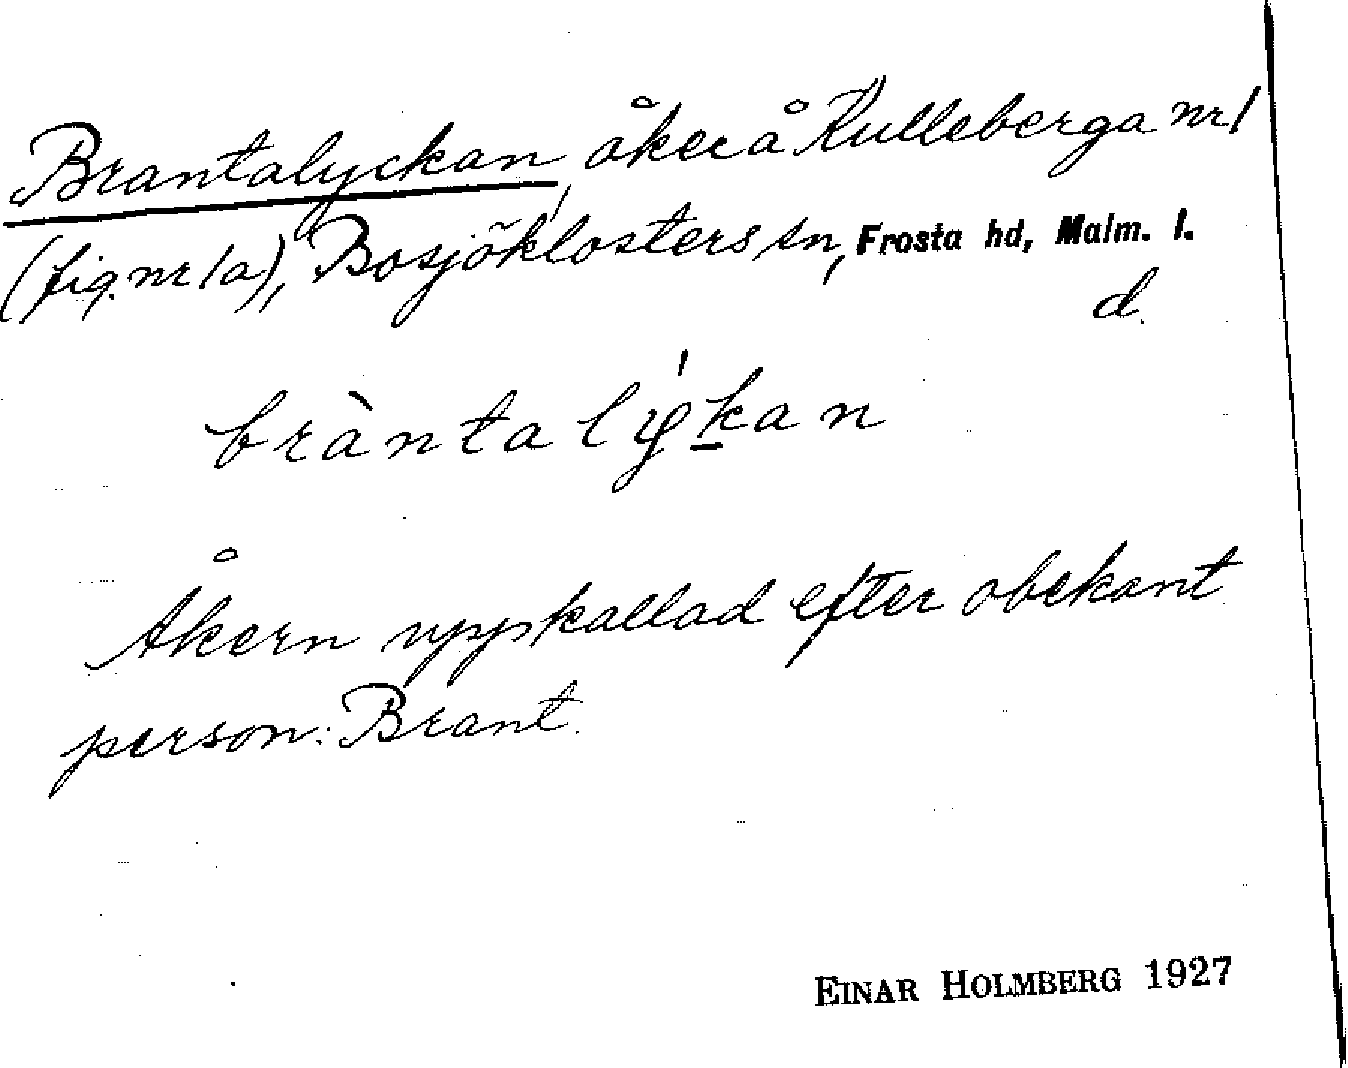 Brantalyckan, åker å Kulleberga nr 1
(fig. nr 1a), Bosjöklosters sn, Frosta hd, Malm. l.
d.
bràntalýkan
Åkern uppkallad efter obekant
person: Brant.
EINAR HOLMBERG 1927